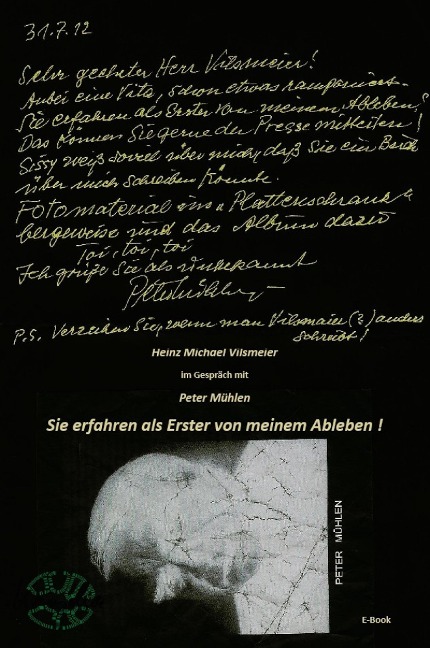 31.7.12
Sehr geehrter Herr Vilsmeier!
Anbei eine Vita, schon etwas ramponiert.
Sie erfahren als Erster von meinem Ableben!
Das können Sie gerne der Presse mitteilen!
Sissy weiß soviel über mich, daß Sie ein Buch
über mich schreiben könnte.
Fotomaterial ins "Plattenschrank"
bergeweise und das Album dazu
Toi, toi, toi
Ich grüße Sie als unbekannt
Peter Mühlen
P.S. Verzeihen Sie, wenn man Vilsmaier (?) anders
schreibt!
Heinz Michael Vilsmeier
im Gespräch mit
Peter Mühlen
Sie erfahren als Erster von meinem Ableben !
PETER MÜHLEN
E-Book